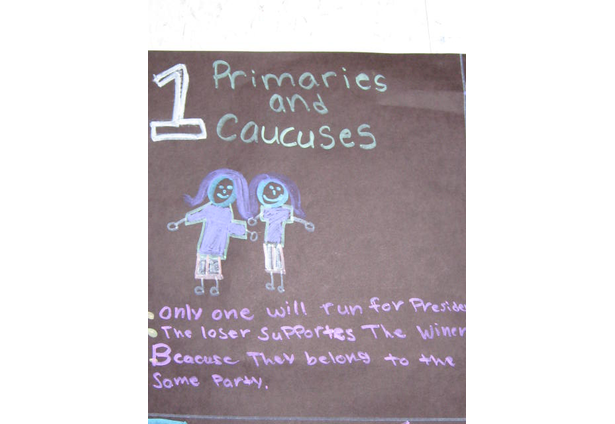 1 Primaries
and
Caucuses
only one will run for Preside
The loser supportes The Winer
Beacuse They belong to the
Same Party.